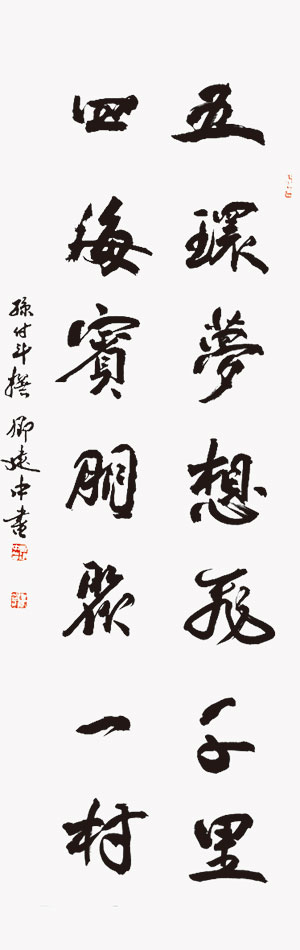 五環夢想飛千里
四海賓朋聚一村
孫付斗撰 中書